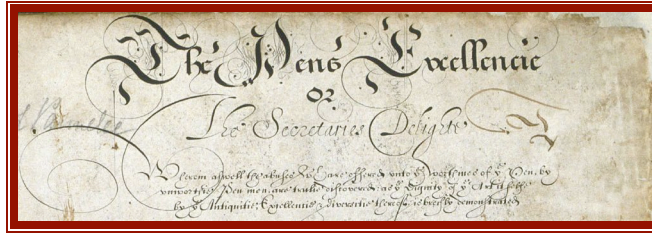 The Pens Excellencie
OR
The Secretaries Delighte
Wherein aswell the abuses wch are offered vnto ye worthines of ye Pen, by
vnworthie Pen men, are trulie discovered; as ye Dignity of ye Art it selfe,
by ye Antiquitie, Excellencie & diversitie thereof, is breifly demonstrated